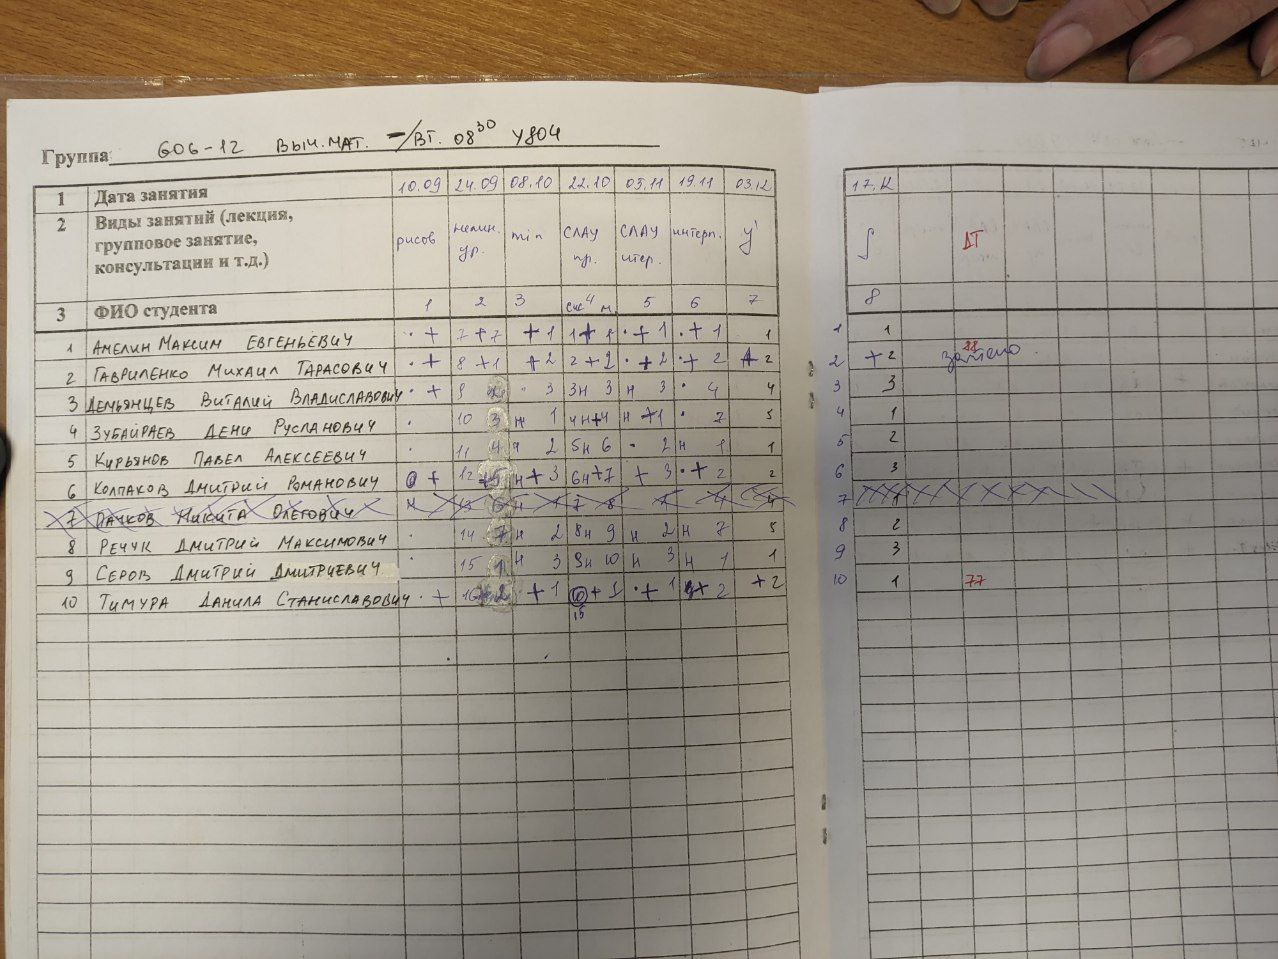 Группа 606-12 ВЫЧ.МАТ. -/ВТ. 08 30 У804
1 Дата занятия 10.09 24.09 08.10 22.10 05.11 19.11 03.12 17.12
2 Виды занятий (лекция, групповое занятие, консультации и т.д.) рисов нелин. ур. min СЛАУ пр. СЛАУ итер. интерп. y' ∫ ДТ
3 ФИО студента 1 2 3 4 5 6 7 8
1 АМЕЛИН МАКСИМ ЕВГЕНЬЕВИЧ · + 7 +7 +1 1+1 · +1 · +1 1 1 1
2 ГАВРИЛЕНКО МИХАИЛ ТАРАСОВИЧ · + 8 +1 +2 2+2 · +2 · +2 +2 2 +2 88 зачтено
3 ДЕМЬЯНЦЕВ ВИТАЛИЙ ВЛАДИСЛАВОВИЧ · + 9 · 3 3н 3 н 3 · 4 4 3 3
4 ЗУБАЙРАЕВ ДЕНИ РУСЛАНОВИЧ · 10 3 н 1 4н+4 н +1 · 7 5 4 1
5 КУРЬЯНОВ ПАВЕЛ АЛЕКСЕЕВИЧ · 11 4 н 2 5н 6 · 2 н 1 1 5 2
6 КОЛПАКОВ ДМИТРИЙ РОМАНОВИЧ + 12 +5 н+3 6н+7 +3 · +2 2 6 3
7 ПАЧКОВ НИКИТА ОЛЕГОВИЧ н 13 6 н 7 8 4 4 7 1
8 РЕЧУК ДМИТРИЙ МАКСИМОВИЧ · 14 7 н 2 8н 9 н 2 н 7 5 8 2
9 СЕРОВ ДМИТРИЙ ДМИТРИЕВИЧ · 15 1 н 3 9н 10 н 3 н 1 1 9 3
10 ТИМУРА ДАНИЛА СТАНИСЛАВОВИЧ · + 16 +2 +1 +1 · +1 +2 +2 10 1 77
15